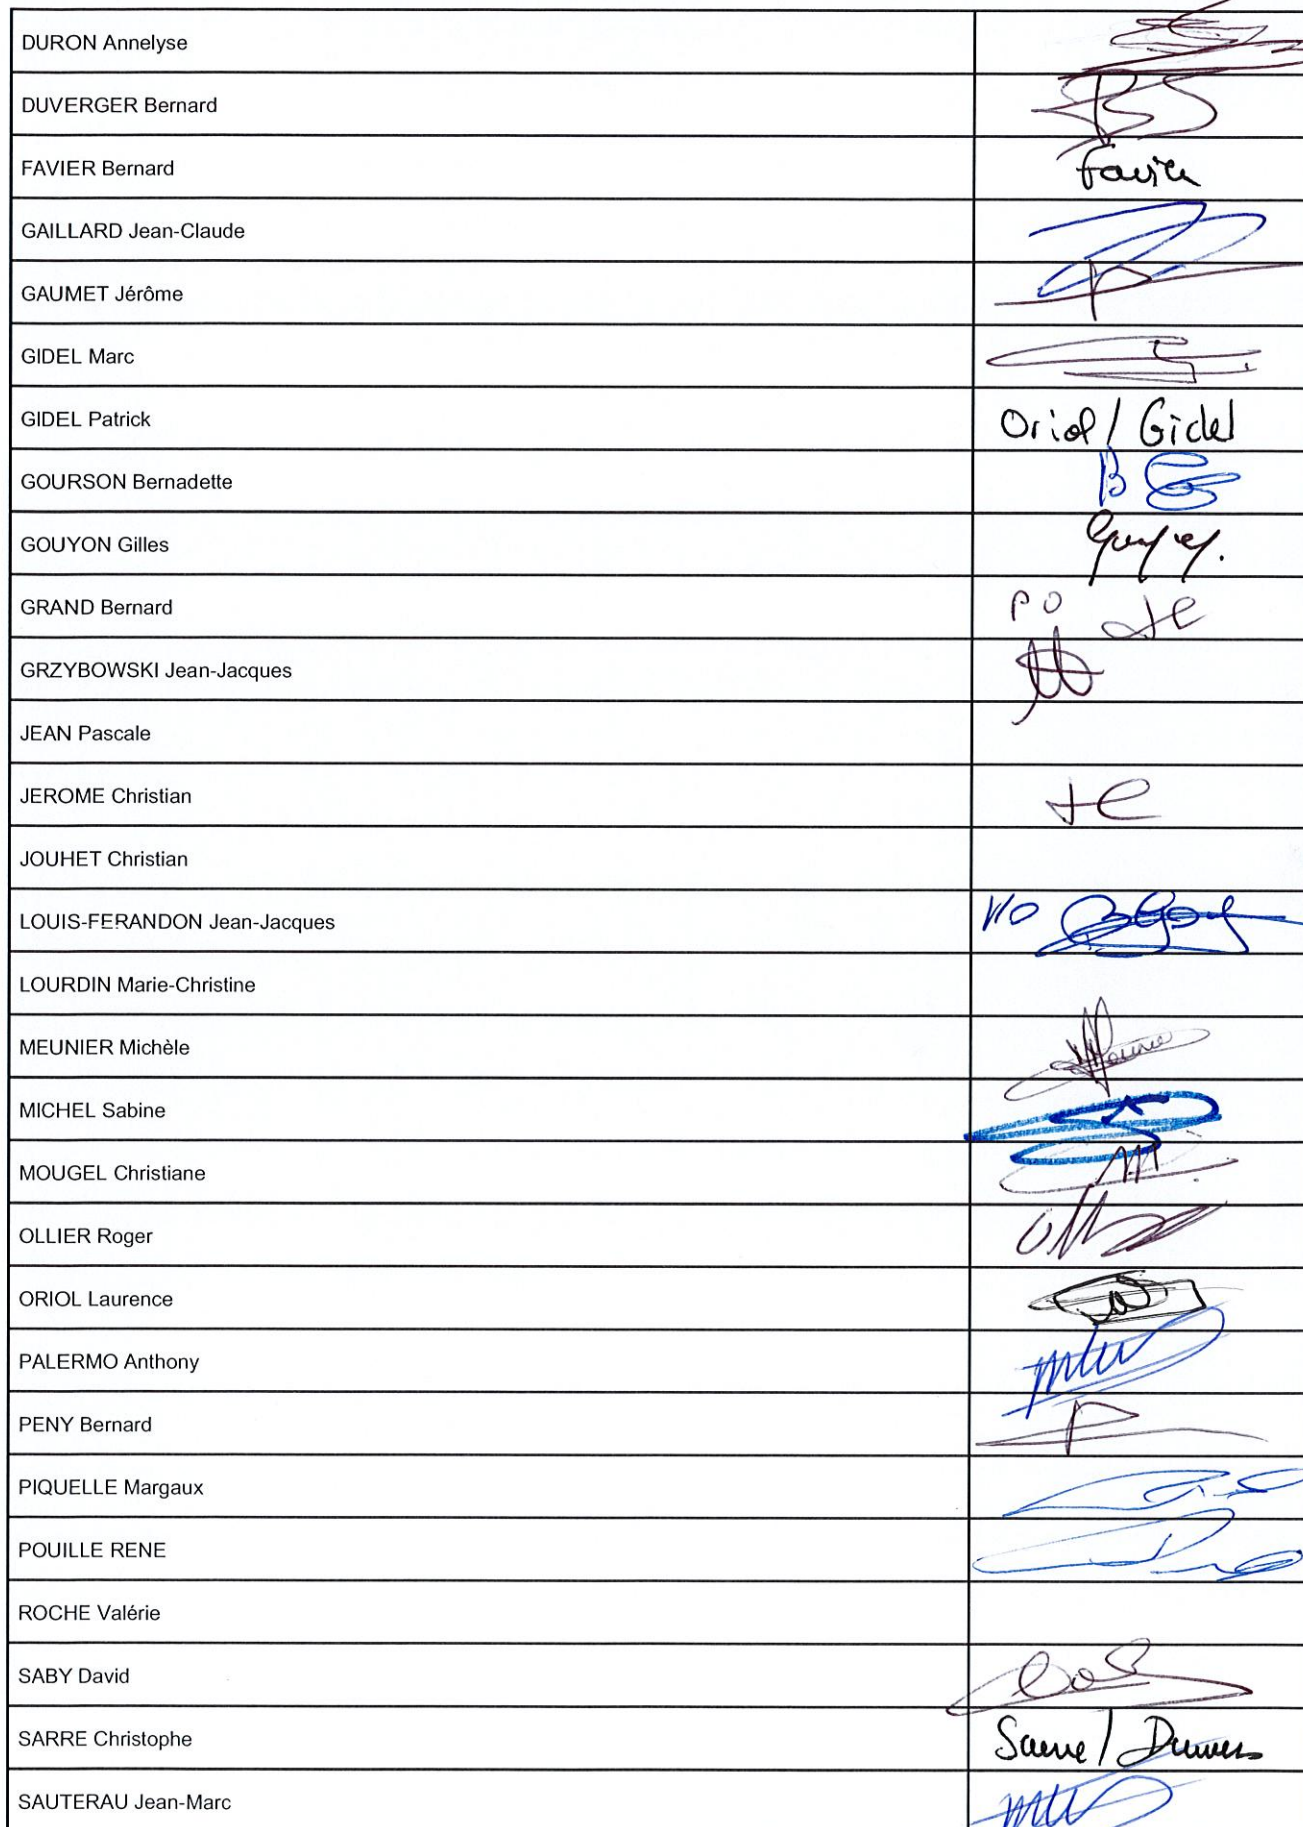 DURON Annelyse
DUVERGER Bernard
FAVIER Bernard Favier
GAILLARD Jean-Claude
GAUMET Jérôme
GIDEL Marc
GIDEL Patrick Oriol / Gidel
GOURSON Bernadette B
GOUYON Gilles
GRAND Bernard PO JC
GRZYBOWSKI Jean-Jacques
JEAN Pascale
JEROME Christian JC
JOUHET Christian
LOUIS-FERANDON Jean-Jacques
LOURDIN Marie-Christine
MEUNIER Michèle
MICHEL Sabine
MOUGEL Christiane
OLLIER Roger
ORIOL Laurence
PALERMO Anthony
PENY Bernard
PIQUELLE Margaux
POUILLE RENE
ROCHE Valérie
SABY David
SARRE Christophe
SAUTERAU Jean-Marc